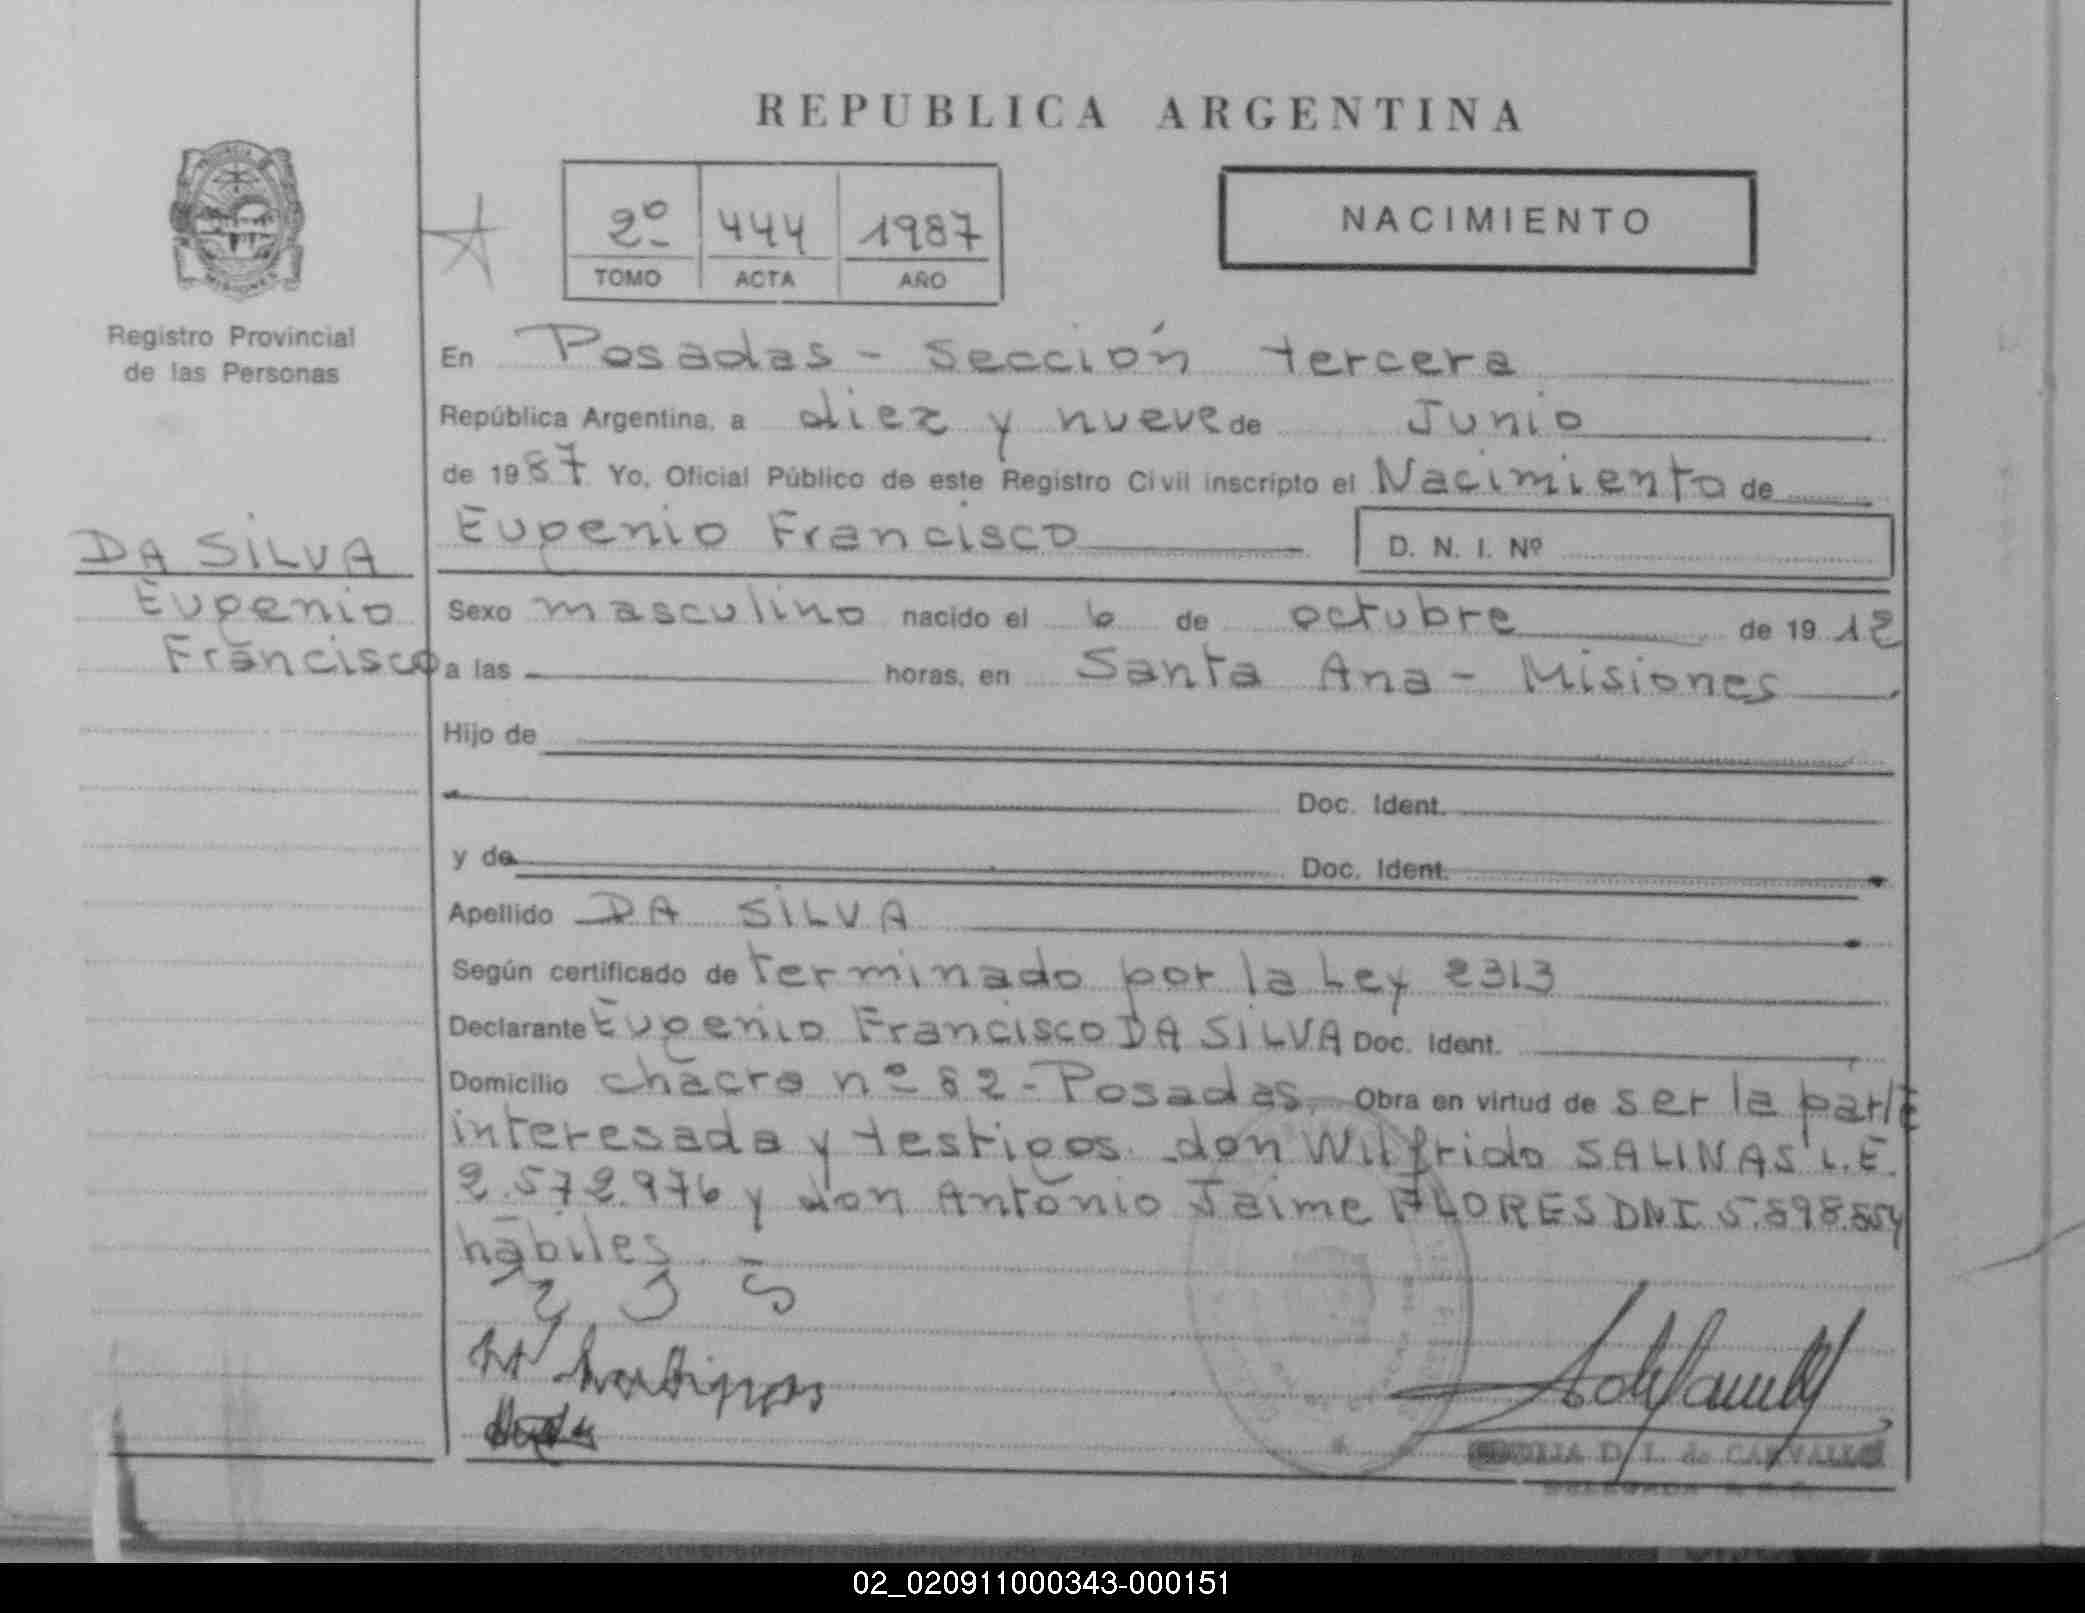 REPUBLICA ARGENTINA
2º 444 1987
TOMO ACTA AÑO
NACIMIENTO
Registro Provincial
de las Personas
DA SILVA
Eugenio
Francisco
En Posadas - sección tercera
República Argentina, a diez y nueve de Junio
de 1987 Yo, Oficial Público de este Registro Civil inscripto el Nacimiento de
Eugenio Francisco D. N. I. Nº
Sexo masculino nacido el 6 de octubre de 19 12
a las horas, en Santa Ana - Misiones
Hijo de
Doc. Ident.
y de Doc. Ident.
Apellido DA SILVA
Según certificado de terminado por la Ley 2313
Declarante Eugenio Francisco DA SILVA Doc. Ident.
Domicilio chacra nº 82 - Posadas. Obra en virtud de ser la parte
interesada y testigos don Wilfrido SALINAS L.E.
2.572.976 y don Antonio Jaime FLORES DNI 5.898.554
hábiles
D. L. de CARVALLO
02_020911000343-000151